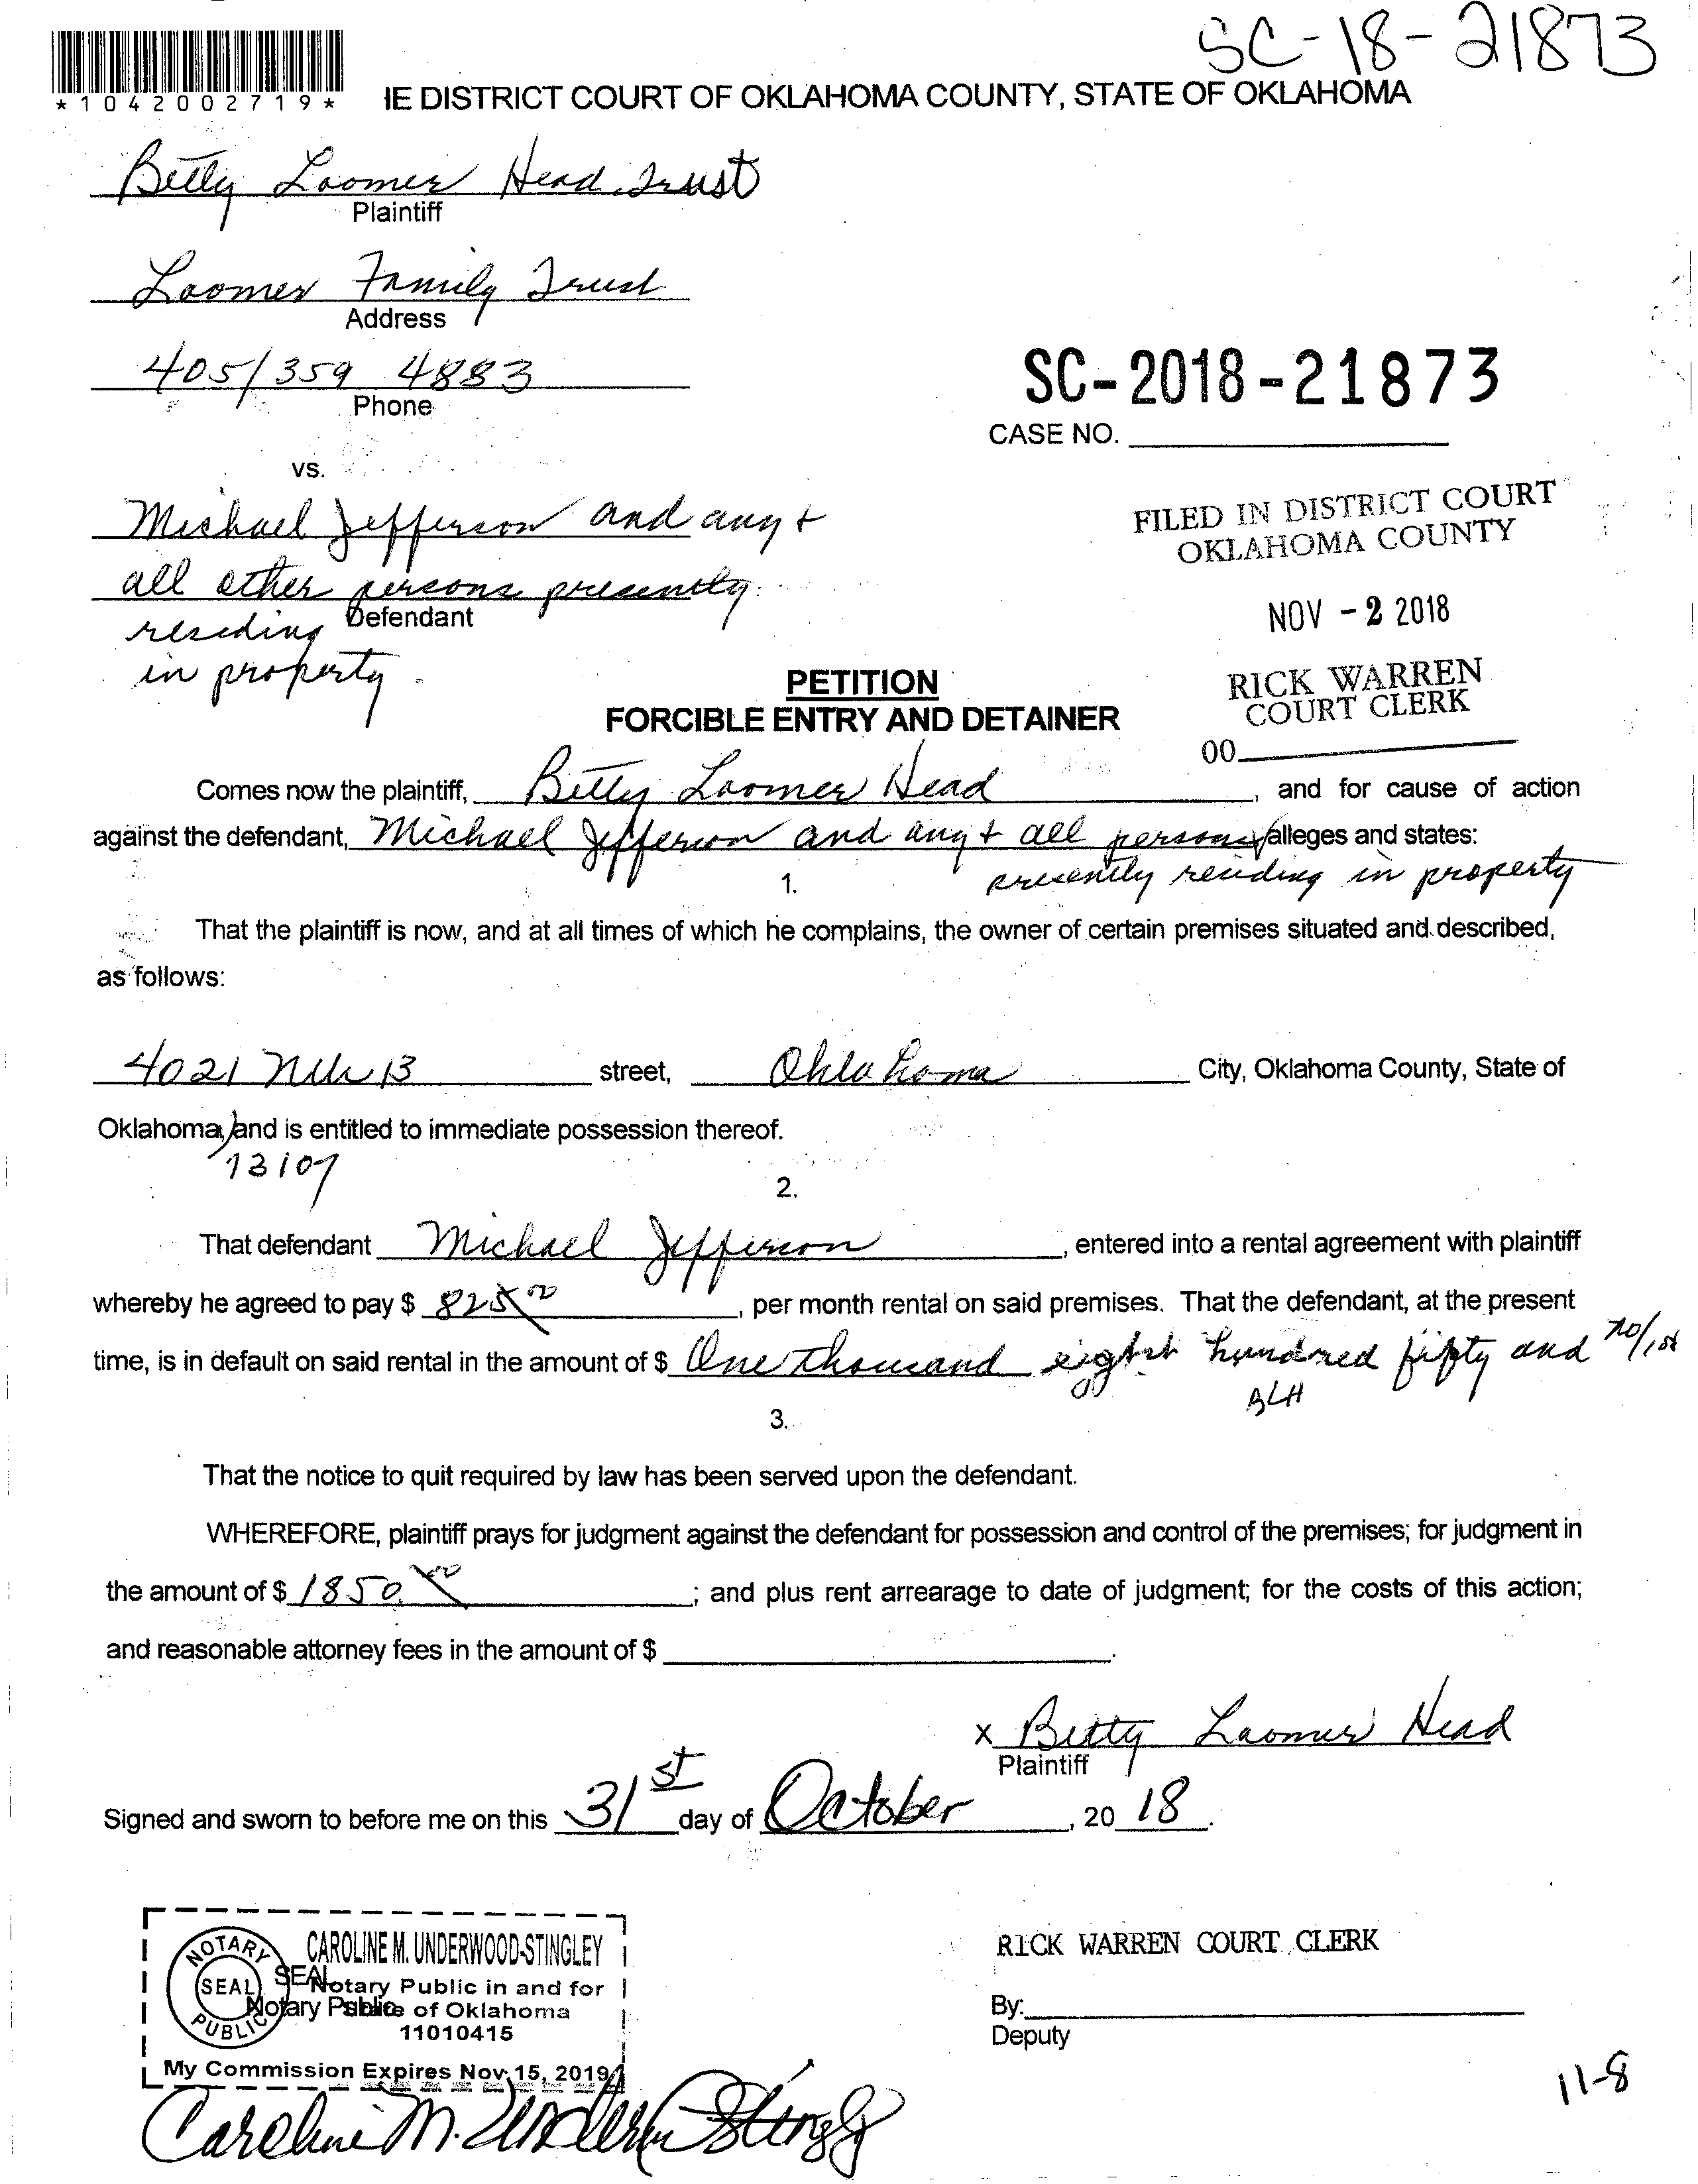 SC-18-21873
*1042002719*
IE DISTRICT COURT OF OKLAHOMA COUNTY, STATE OF OKLAHOMA
Betty Loomer Head Trust
Plaintiff
Loomer Family Trust
Address
405/359 4883
Phone
SC-2018-21873
CASE NO.
vs.
Michael Jefferson and any +
all other persons presently
residing
Defendant
in property.
FILED IN DISTRICT COURT
OKLAHOMA COUNTY
NOV - 2 2018
RICK WARREN
COURT CLERK
00
PETITION
FORCIBLE ENTRY AND DETAINER
Comes now the plaintiff, Betty Loomer Head, and for cause of action
against the defendant, Michael Jefferson and any + all persons alleges and states:
presently residing in property
1.
That the plaintiff is now, and at all times of which he complains, the owner of certain premises situated and described,
as follows:
4021 NW 13 street, Oklahoma City, Oklahoma County, State of
Oklahoma, and is entitled to immediate possession thereof.
73107
2.
That defendant Michael Jefferson, entered into a rental agreement with plaintiff
whereby he agreed to pay $ 825 00, per month rental on said premises. That the defendant, at the present
time, is in default on said rental in the amount of $ One thousand eight hundred fifty and no/100
BLH
3.
That the notice to quit required by law has been served upon the defendant.
WHEREFORE, plaintiff prays for judgment against the defendant for possession and control of the premises; for judgment in
the amount of $ 1850. 00; and plus rent arrearage to date of judgment; for the costs of this action;
and reasonable attorney fees in the amount of $ .
X Betty Loomer Head
Plaintiff
Signed and sworn to before me on this 31st day of October, 20 18.
NOTARY PUBLIC
SEAL
CAROLINE M. UNDERWOOD-STINGLEY
SEAL
Notary Public in and for
Notary Public
State of Oklahoma
11010415
My Commission Expires Nov 15, 2019
Caroline M. Underwood-Stingley
RICK WARREN COURT CLERK
By:
Deputy
11-8